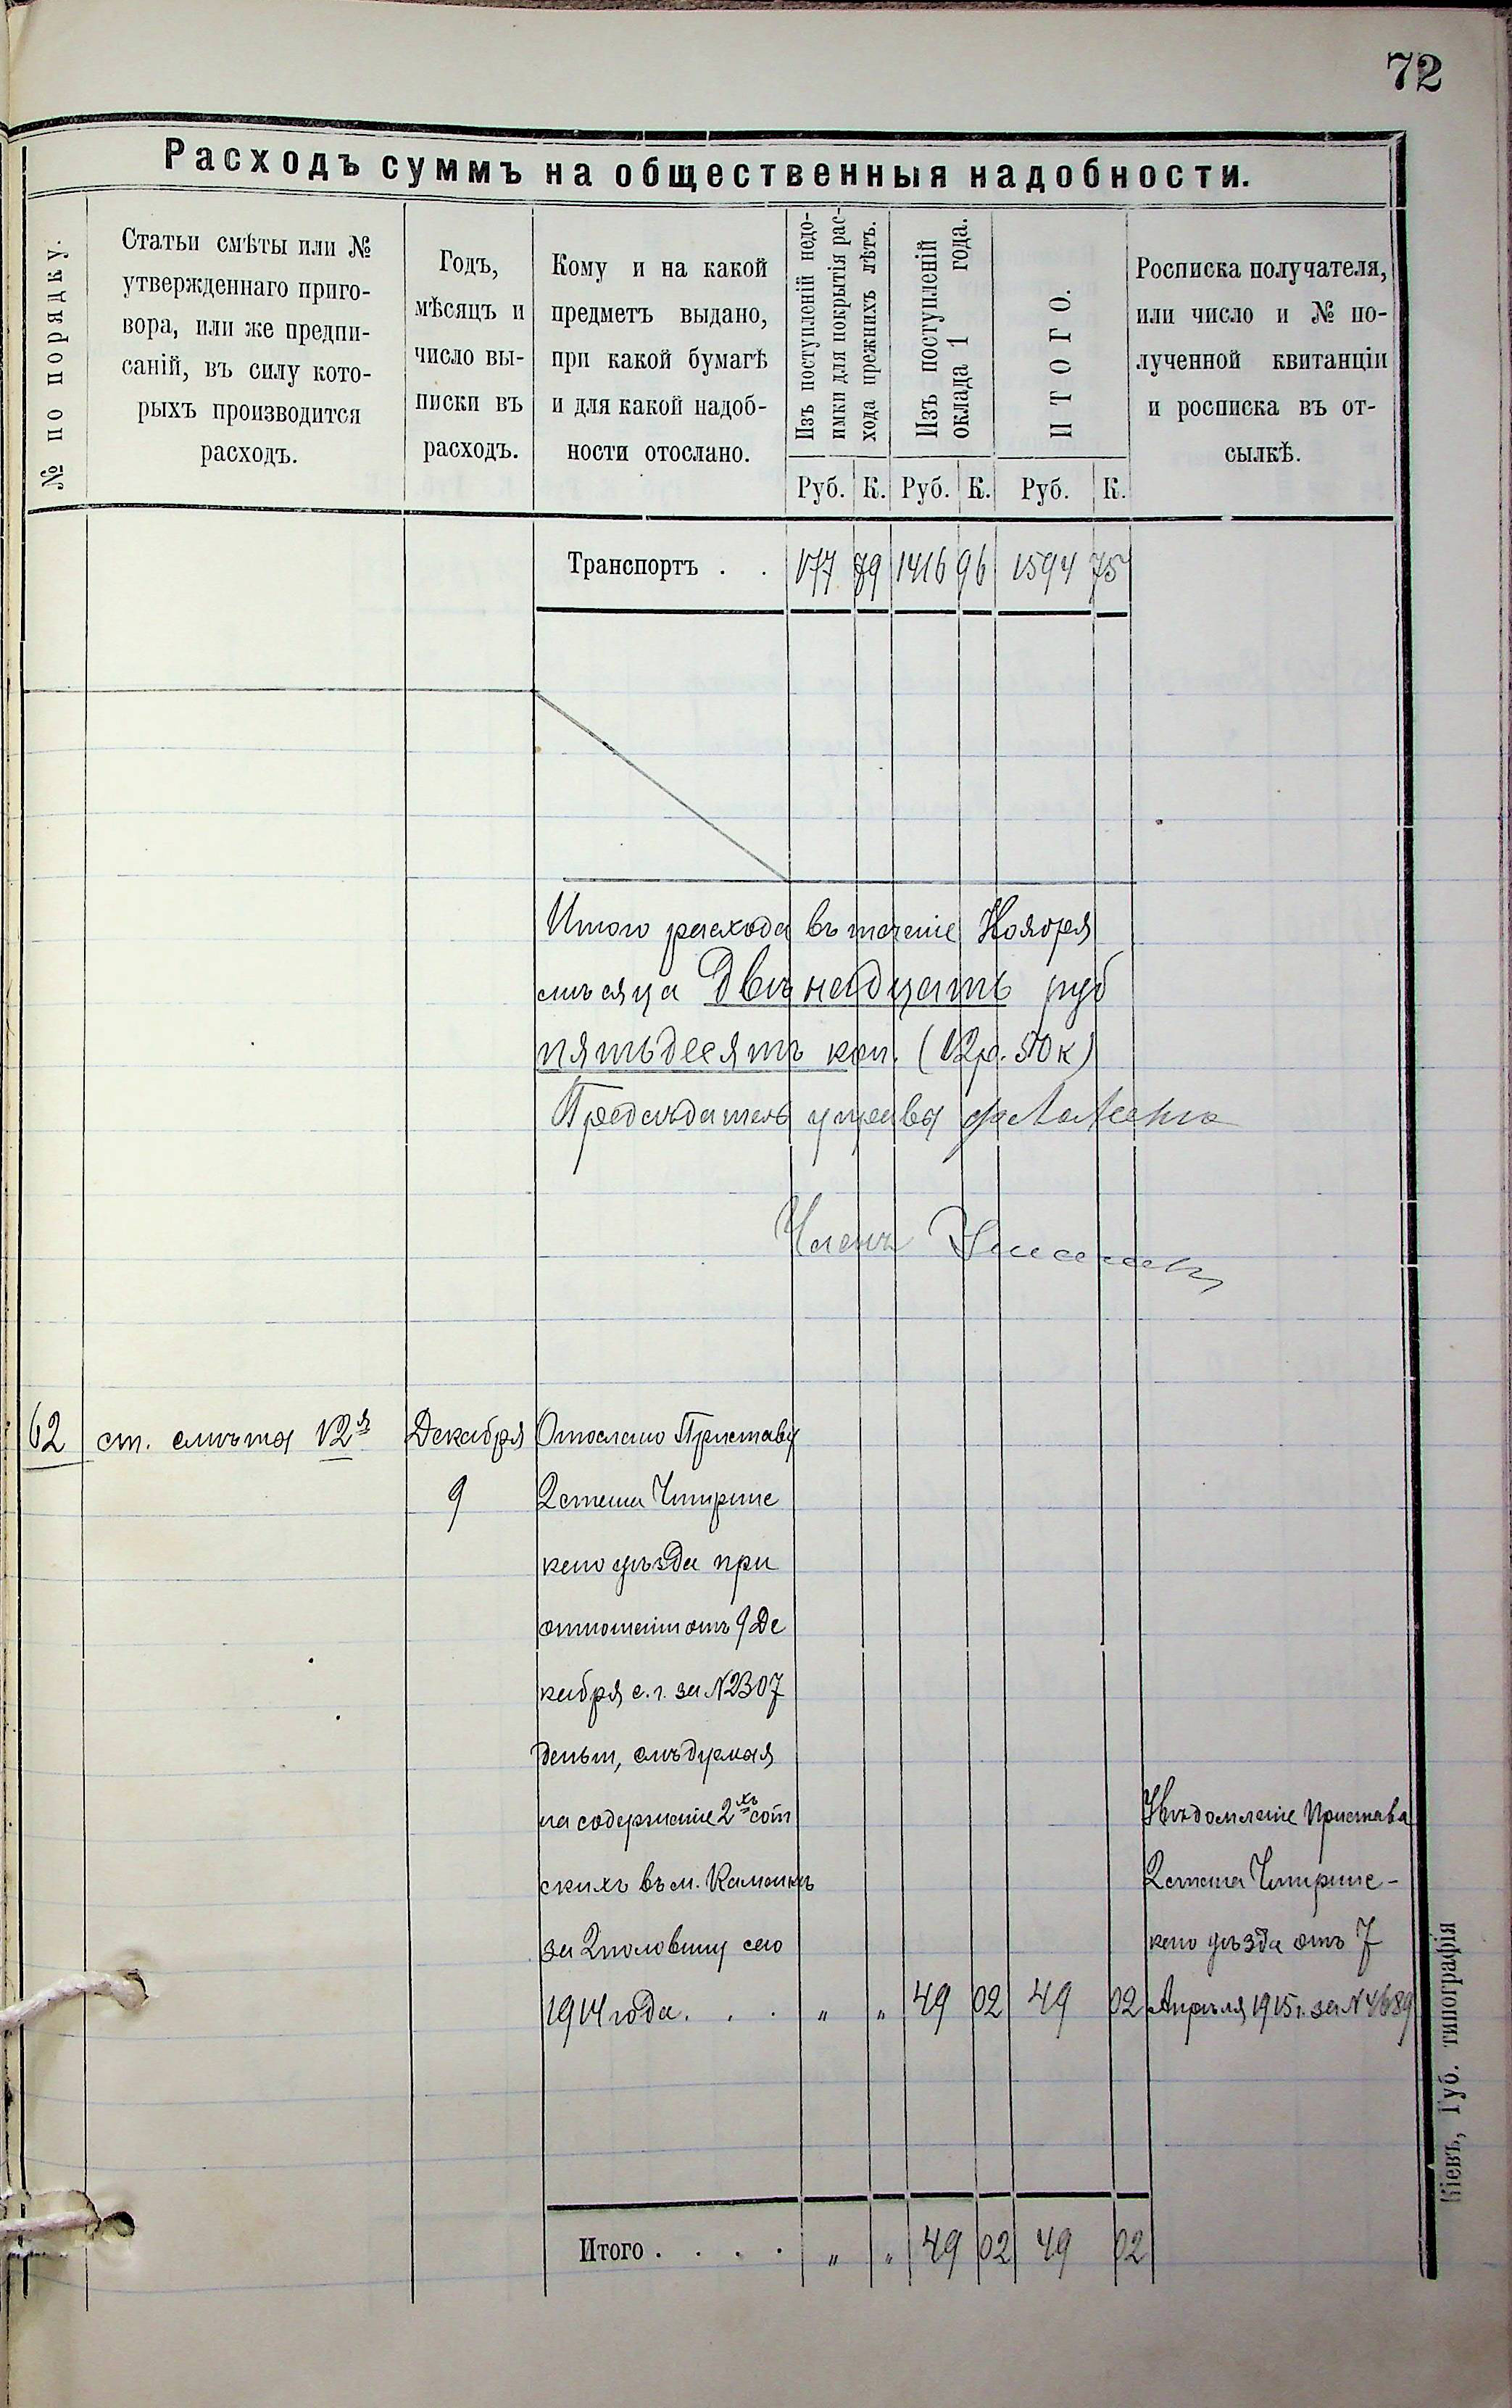 72
Расходъ суммъ на общественныя надобности.
№ по порядку.
Статьи смѣты или №
утвержденнаго приго-
вора, или же предпи-
саній, въ силу кото-
рыхъ производится
расходъ.
Годъ,
мѣсяцъ и
число вы-
писки въ
расходъ.
Кому и на какой
предметъ выдано,
при какой бумагѣ
и для какой надоб-
ности отослано.
Изъ поступленій недо-
имки для покрытія рас-
хода прежнихъ лѣтъ.
Изъ поступленій
оклада 1 года.
ИТОГО.
Росписка получателя,
или число и № по-
лученной квитанціи
и росписка въ от-
сылкѣ.
Руб. К. Руб. К. Руб. К.
Транспортъ . . 177 79 1416 96 1594 75
Итого расхода въ теченіе Ноября
мѣсяца Двѣнадцать руб
пятьдесятъ коп. (12р. 50к)
Предсѣдатель управы
Членъ
62 ст. смѣта 12я Декабря Отослано Приставу
9 2 стана Чигиринс
каго уѣзда при
отношеніи отъ 9 Де
кабря с. г. за №2307
деньги, слѣдуемыя
на содержаніе 2хъ сот
скихъ въ м. Каменкѣ
за 2 половину сего
1914 года. . . " " 49 02 49 02
Увѣдомленіе Пристава
2 стана Чигиринс-
каго уѣзда отъ 7
Апрѣля 1915 г. за № 4689
Итого . . . . " " 49 02 49 02
Кіевъ, Губ. типографія